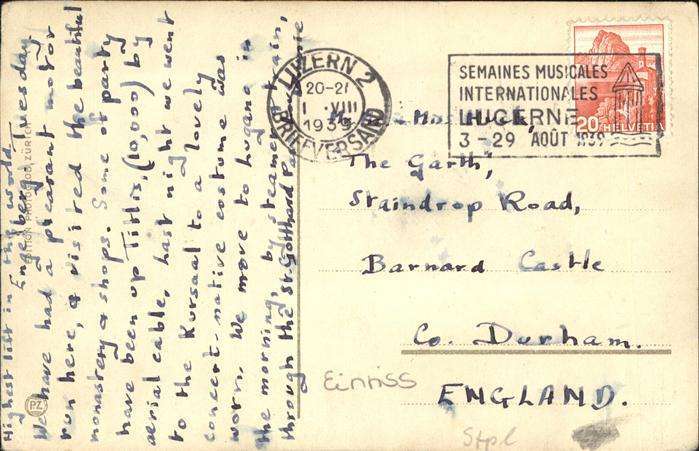 Highest lift in the world.
Engelberg. Tuesday.
We have had a pleasant motor
run here, & visited the beautiful
monastery & shops. Some of party
have been up Titlis, (10,000) by
aerial cable, Last night we went
to the Kursaal to a lovely
concert - native costume was
worn. We move to Lugano in
the morning, by steamer & train,
through the St. Gotthard Pass.
LUZERN 2
20-21
1. VIII
1939
BRIEFVERSAND
SEMAINES MUSICALES
INTERNATIONALES
LUCERNE
3 - 29 AOÛT 1939
20 HELVETIA
"The Garth",
Staindrop Road,
Barnard Castle
Co. Durham.
ENGLAND.
Einriss
Stpl
PZ